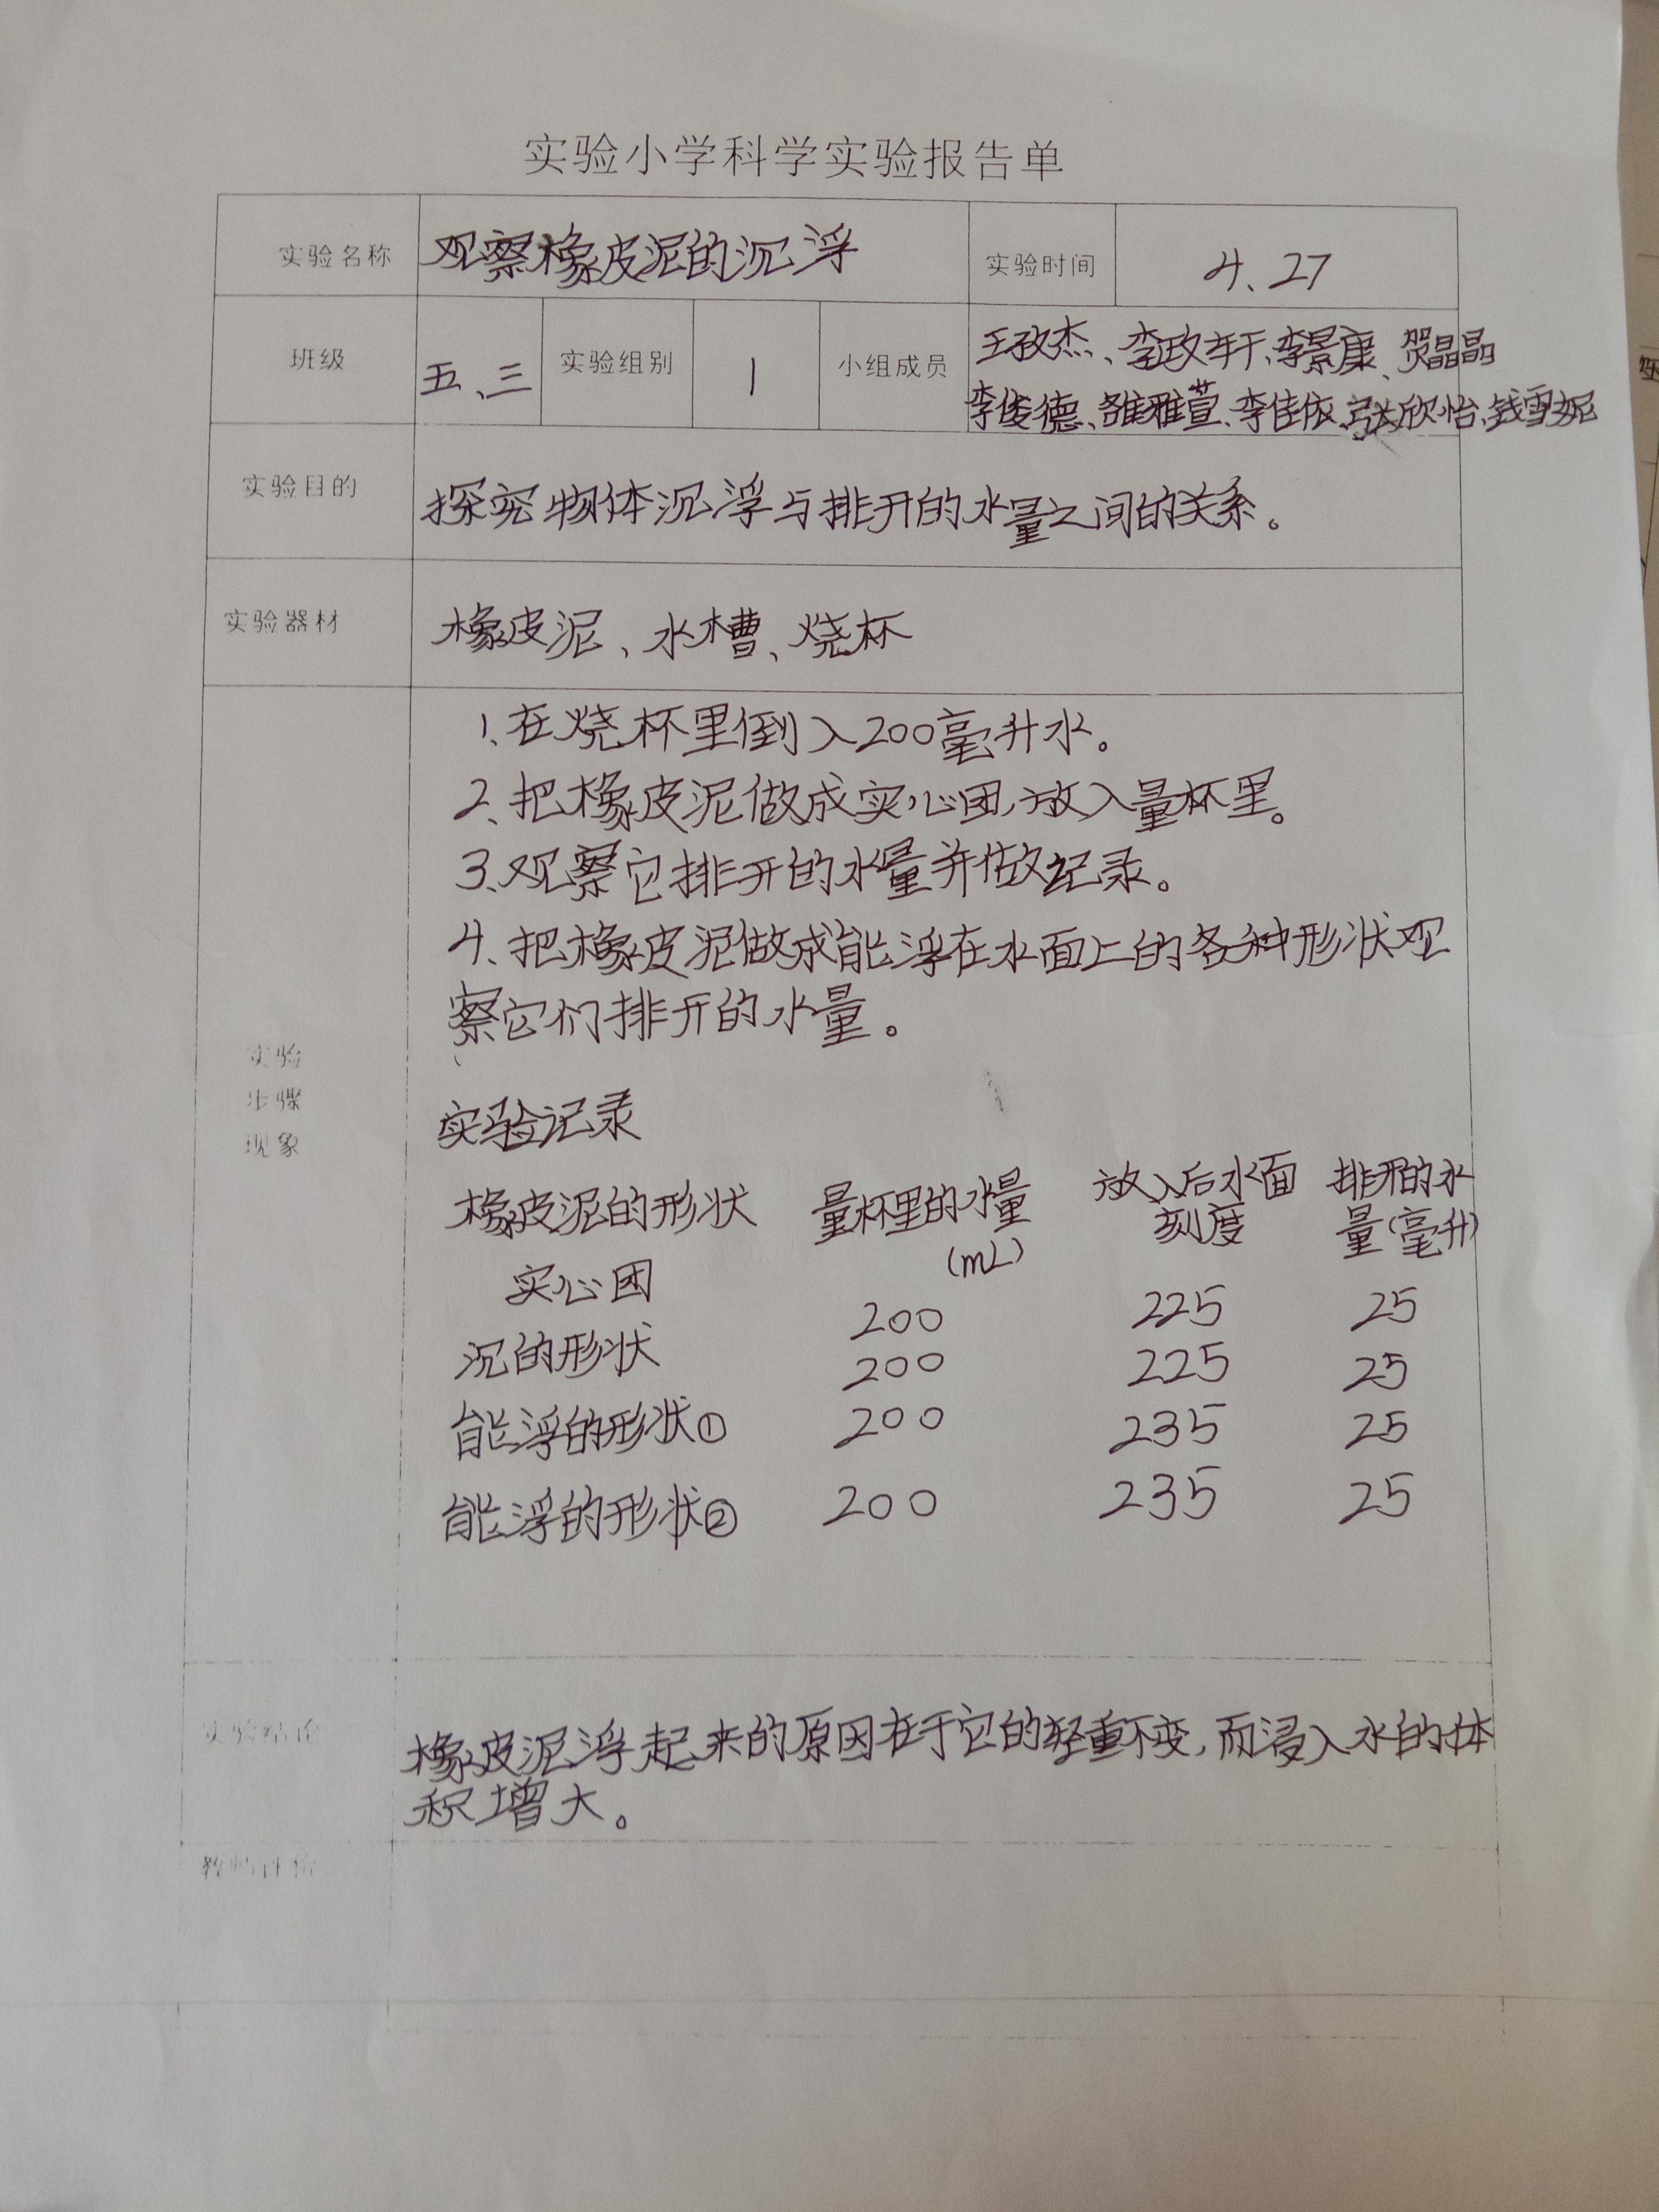 实验小学科学实验报告单
实验名称 观察橡皮泥的沉浮 实验时间 4、27
班级 五、三 实验组别 1 小组成员 王孜杰、李政轩、李景康、贺晶晶
李俊德、雒雅萱、李佳依、张欣怡、钱雪妮
实验目的 探究物体沉浮与排开的水量之间的关系。
实验器材 橡皮泥、水槽、烧杯
1、在烧杯里倒入200毫升水。
2、把橡皮泥做成实心团,放入量杯里。
3、观察它排开的水量并做纪录。
4、把橡皮泥做成能浮在水面上的各种形状观
察它们排开的水量。
实验
步骤
现象
实验记录
橡皮泥的形状 量杯里的水量(mL) 放入后水面刻度 排开的水量(毫升)
实心团 200 225 25
沉的形状 200 225 25
能浮的形状① 200 235 25
能浮的形状② 200 235 25
实验结论 橡皮泥浮起来的原因在于它的轻重不变,而浸入水的体
积增大。
教师评价